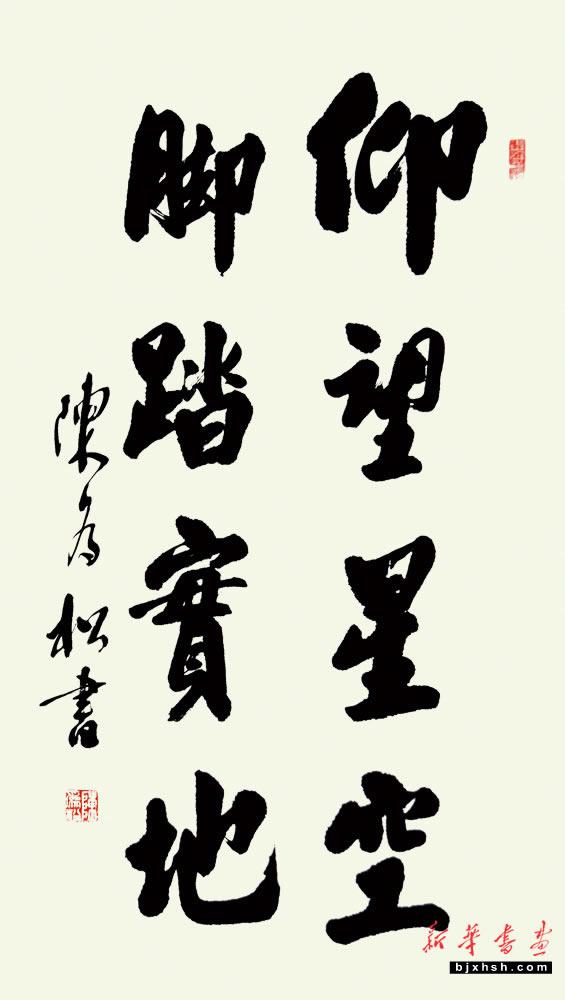 仰望星空
脚踏實地
陳为松書
新华書画
bjxhsh.com